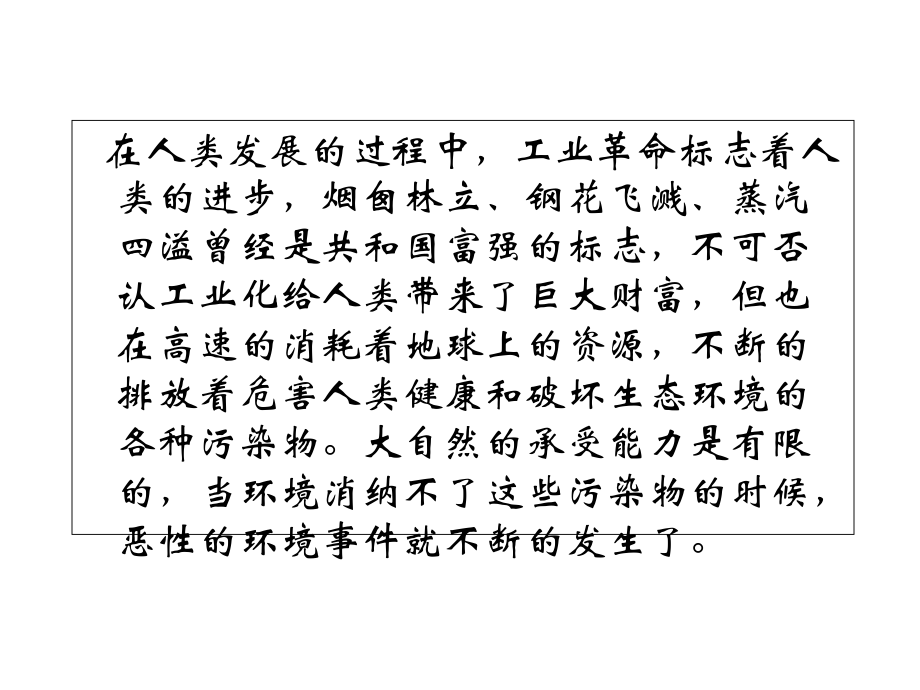 在人类发展的过程中，工业革命标志着人
类的进步，烟囱林立、钢花飞溅、蒸汽
四溢曾经是共和国富强的标志，不可否
认工业化给人类带来了巨大财富，但也
在高速的消耗着地球上的资源，不断的
排放着危害人类健康和破坏生态环境的
各种污染物。大自然的承受能力是有限
的，当环境消纳不了这些污染物的时候，
恶性的环境事件就不断的发生了。